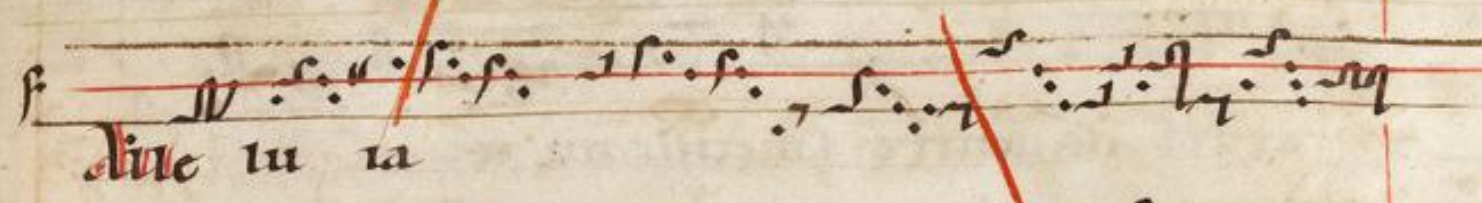 F
Alle lu ia